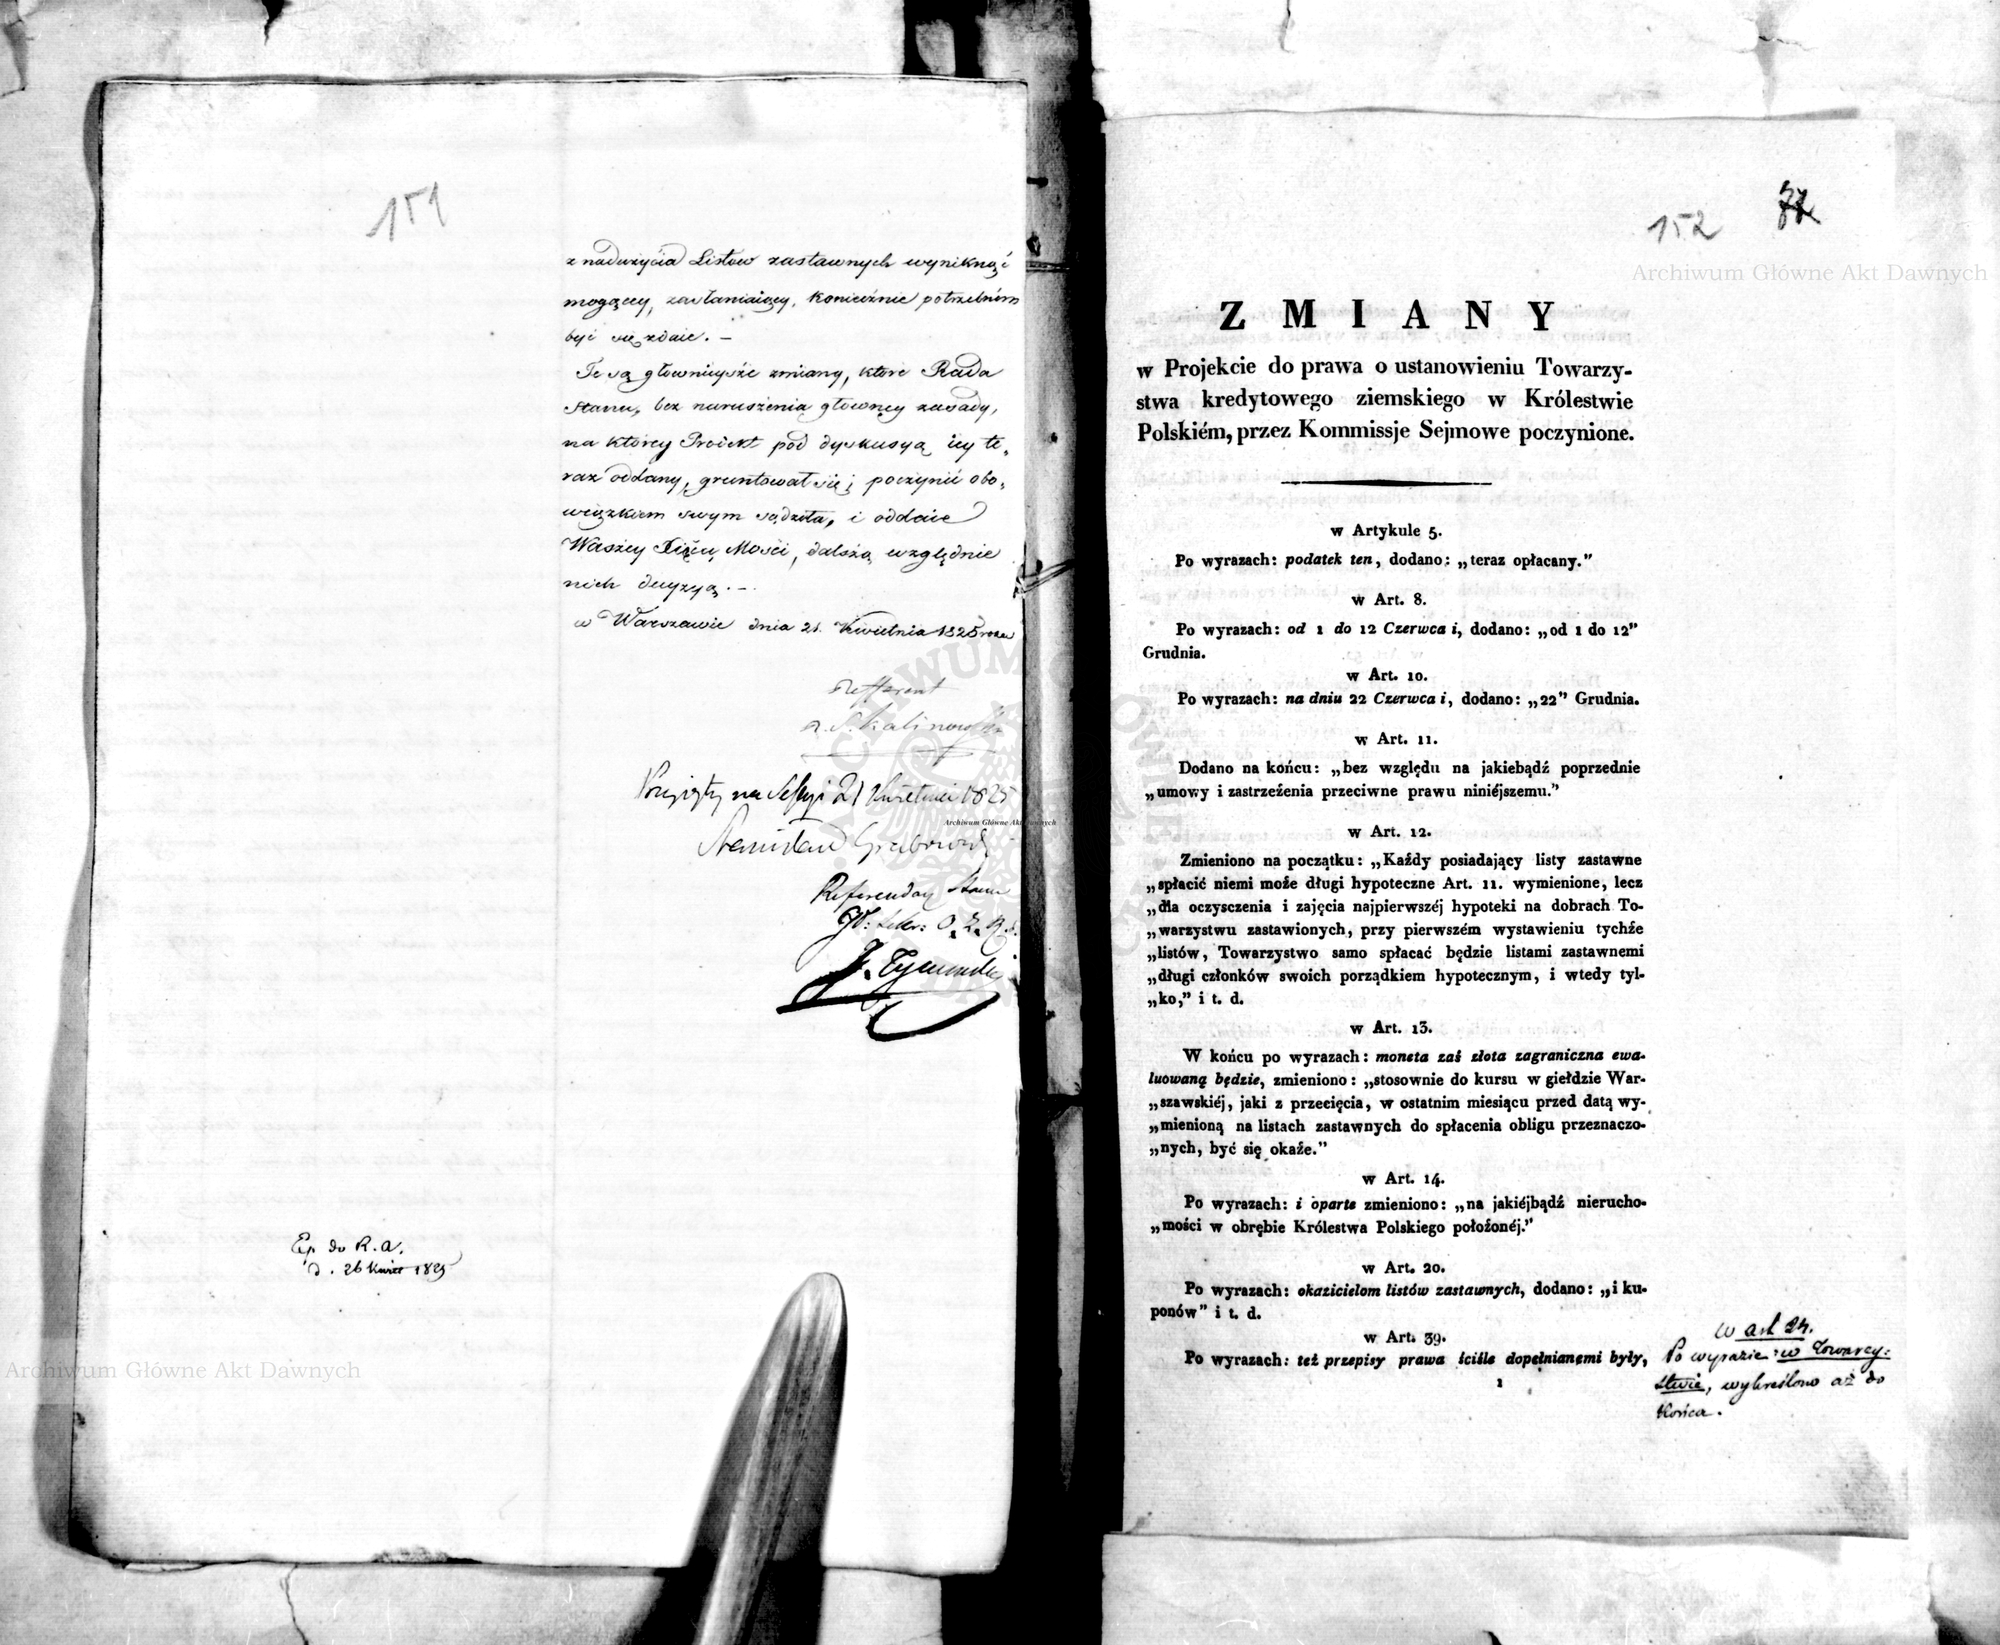 151
z nadużycia Listow zastawnych wyniknąć
mogącey, zasłaniaiący, koniecznie potrzebnem
być się zdaie. –
Te są głownieysze zmiany, ktore Rada
Stanu, bez naruszenia głowney zasady,
na ktorey Proiekt pod dyskusyą iey te-
raz oddany, gruntował się; poczynić obo-
wiązkiem swym sądziła, i oddaie
Waszey Xiążę: Mości, dalszą względnie
nich decyzyą. –
w Warszawie dnia 21. Kwietnia 1825 roku
Refferent
Kalinowski
Przyięty na Sessyi 21 Kwietnia 1825
Stanisław Grabowski
Referendarz Stanu
J. Tymowski
Exp. do R. A.
d. 26 Kwiet 1825
152
Z M I A N Y
w Projekcie do prawa o ustanowieniu Towarzy-
stwa kredytowego ziemskiego w Królestwie
Polskiém, przez Kommissje Sejmowe poczynione.
w Artykule 5.
Po wyrazach: podatek ten, dodano: „teraz opłacany.”
w Art. 8.
Po wyrazach: od 1 do 12 Czerwca i, dodano: „od 1 do 12”
Grudnia.
w Art. 10.
Po wyrazach: na dniu 22 Czerwca i, dodano: „22” Grudnia.
w Art. 11.
Dodano na końcu: „bez względu na jakiebądź poprzednie
„umowy i zastrzeżenia przeciwne prawu niniéjszemu.”
w Art. 12.
Zmieniono na początku: „Każdy posiadający listy zastawne
„spłacić niemi może długi hypoteczne Art. 11. wymienione, lecz
„dla oczysczenia i zajęcia najpierwszéj hypoteki na dobrach To-
„warzystwu zastawionych, przy pierwszém wystawieniu tychże
„listów, Towarzystwo samo spłacać będzie listami zastawnemi
„długi członków swoich porządkiem hypotecznym, i wtedy tyl-
„ko,” i t. d.
w Art. 13.
W końcu po wyrazach: moneta zaś złota zagraniczna ewa-
luowaną będzie, zmieniono: „stosownie do kursu w giełdzie War-
„szawskiéj, jaki z przecięcia, w ostatnim miesiącu przed datą wy-
„mienioną na listach zastawnych do spłacenia obligu przeznaczo-
„nych, być się okaże.”
w Art. 14.
Po wyrazach: i oparte zmieniono: „na jakiéjbądź nierucho-
„mości w obrębie Królestwa Polskiego położonéj.”
w Art. 20.
Po wyrazach: okazicielom listów zastawnych, dodano: „i ku-
ponów” i t. d.
w Art. 39.
Po wyrazach: też przepisy prawa ściśle dopełnianemi były,
1
w art 24.
Po wyrazie: w Towarzy-
stwie, wykreślono aż do
końca.
Archiwum Główne Akt Dawnych
Archiwum Główne Akt Dawnych
Archiwum Główne Akt Dawnych